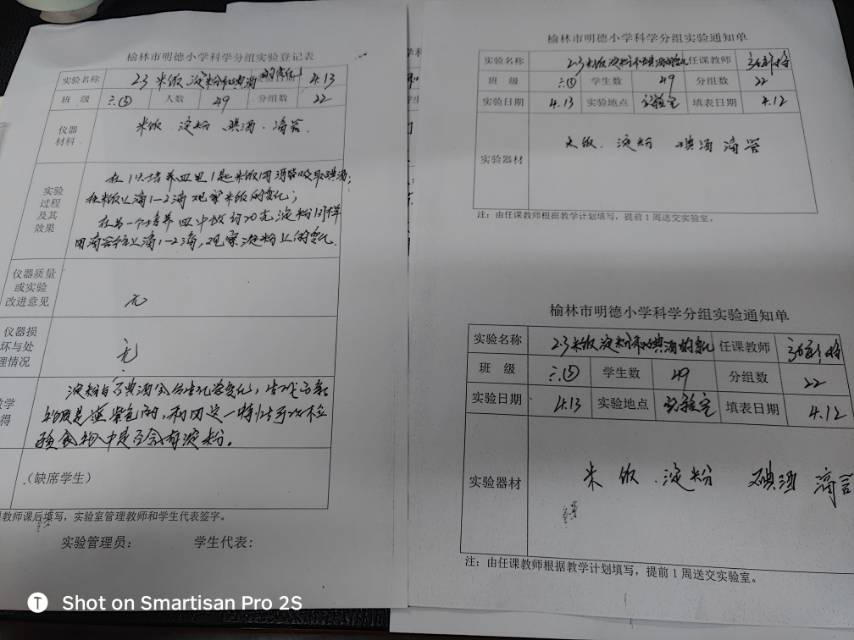 榆林市明德小学科学分组实验登记表
实验名称 2.3 米饭 淀粉和碘酒的变化 4.13
班 级 六(5) 人数 49 分组数 22
仪器材料 米饭 . 淀粉 碘酒 . 滴管 .
实验过程及其效果
在1只培养皿里1匙米饭用滴管吸取碘酒;
在米饭上滴1~2滴 观察米饭的变化;
在另一个培养皿中放 淀粉 同样
用滴管往上滴1~2滴, 观察淀粉上的变化.
仪器质量或实验改进意见 无
仪器损坏与处理情况 无
学得
淀粉与了碘酒会发生化学变化, 生成了新
物质是蓝紫色的, 利用这一特性可以检
验食物中是否含有淀粉。
(缺席学生)
教师课后填写,实验室管理教师和学生代表签字。
实验管理员: 学生代表:
榆林市明德小学科学分组实验通知单
实验名称 2.3 米饭 淀粉和碘酒的变化 任课教师
班 级 六(5) 学生数 49 分组数 22
实验日期 4.13 实验地点 实验室 填表日期 4.12
实验器材 米饭 . 淀粉 碘酒 滴管
注:由任课教师根据教学计划填写,提前1周送交实验室。
榆林市明德小学科学分组实验通知单
实验名称 2.3 米饭 淀粉和碘酒的变化 任课教师
班 级 六(5) 学生数 49 分组数 22
实验日期 4.13 实验地点 实验室 填表日期 4.12
实验器材 米饭 . 淀粉 碘酒 滴管
注:由任课教师根据教学计划填写,提前1周送交实验室。
Shot on Smartisan Pro 2S